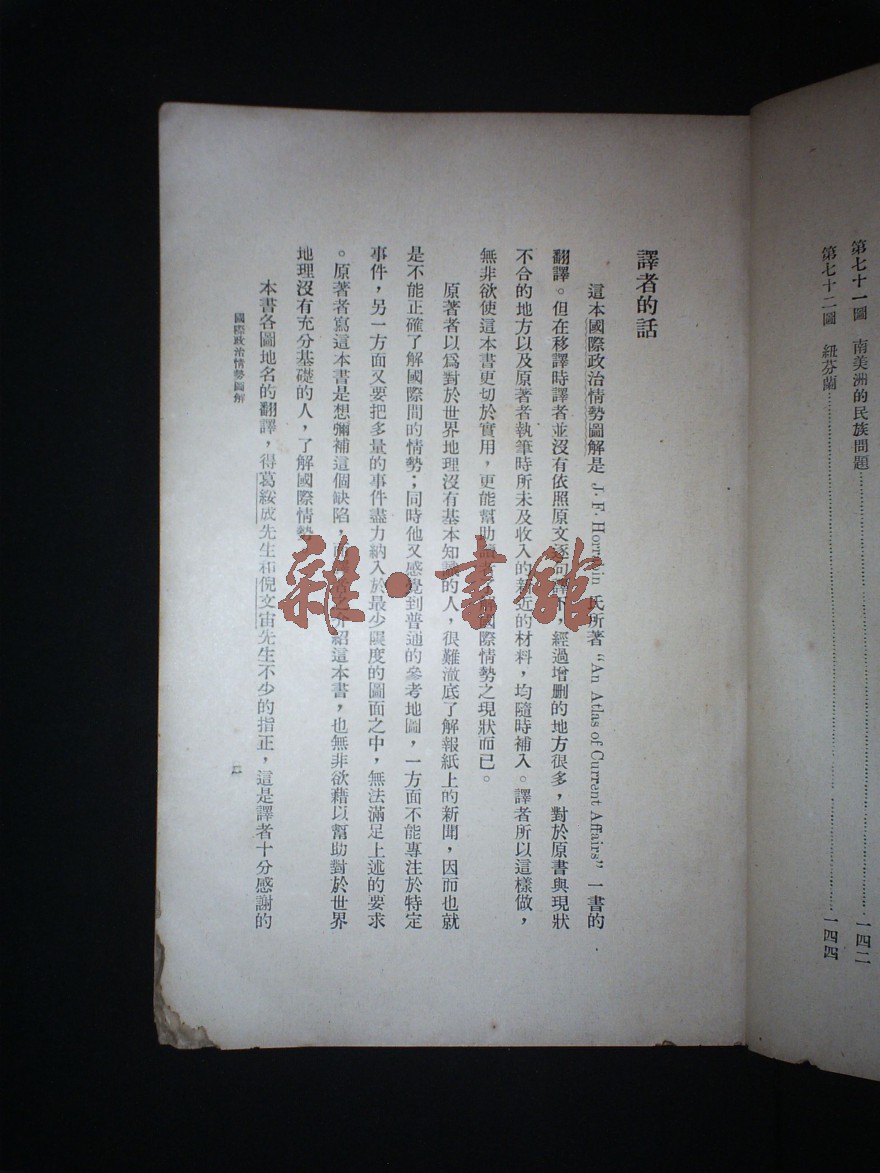 第七十一圖 南美洲的民族問題……一四二
第七十二圖 紐芬蘭……一四四
譯者的話
這本國際政治情勢圖解是 J. F. Horrabin 氏所著 “An Atlas of Current Affairs” 一書的
翻譯。但在移譯時譯者並沒有依照原文逐句譯下，經過增删的地方很多，對於原書與現狀
不合的地方以及原著者執筆時所未及收入的新近的材料，均隨時補入。譯者所以這樣做，
無非欲使這本書更切於實用，更能幫助讀者了解國際情勢之現狀而已。
原著者以爲對於世界地理沒有基本知識的人，很難澈底了解報紙上的新聞，因而也就
是不能正確了解國際間的情勢；同時他又感覺到普通的參考地圖，一方面不能專注於特定
事件，另一方面又要把多量的事件盡力納入於最少限度的圖面之中，無法滿足上述的要求
。原著者寫這本書是想彌補這個缺陷，介紹這本書，也無非欲藉以幫助對於世界
地理沒有充分基礎的人，了解國際情勢
本書各圖地名的翻譯，得葛綏成先生和倪文宙先生不少的指正，這是譯者十分感謝的
國際政治情勢圖解
雜·書館